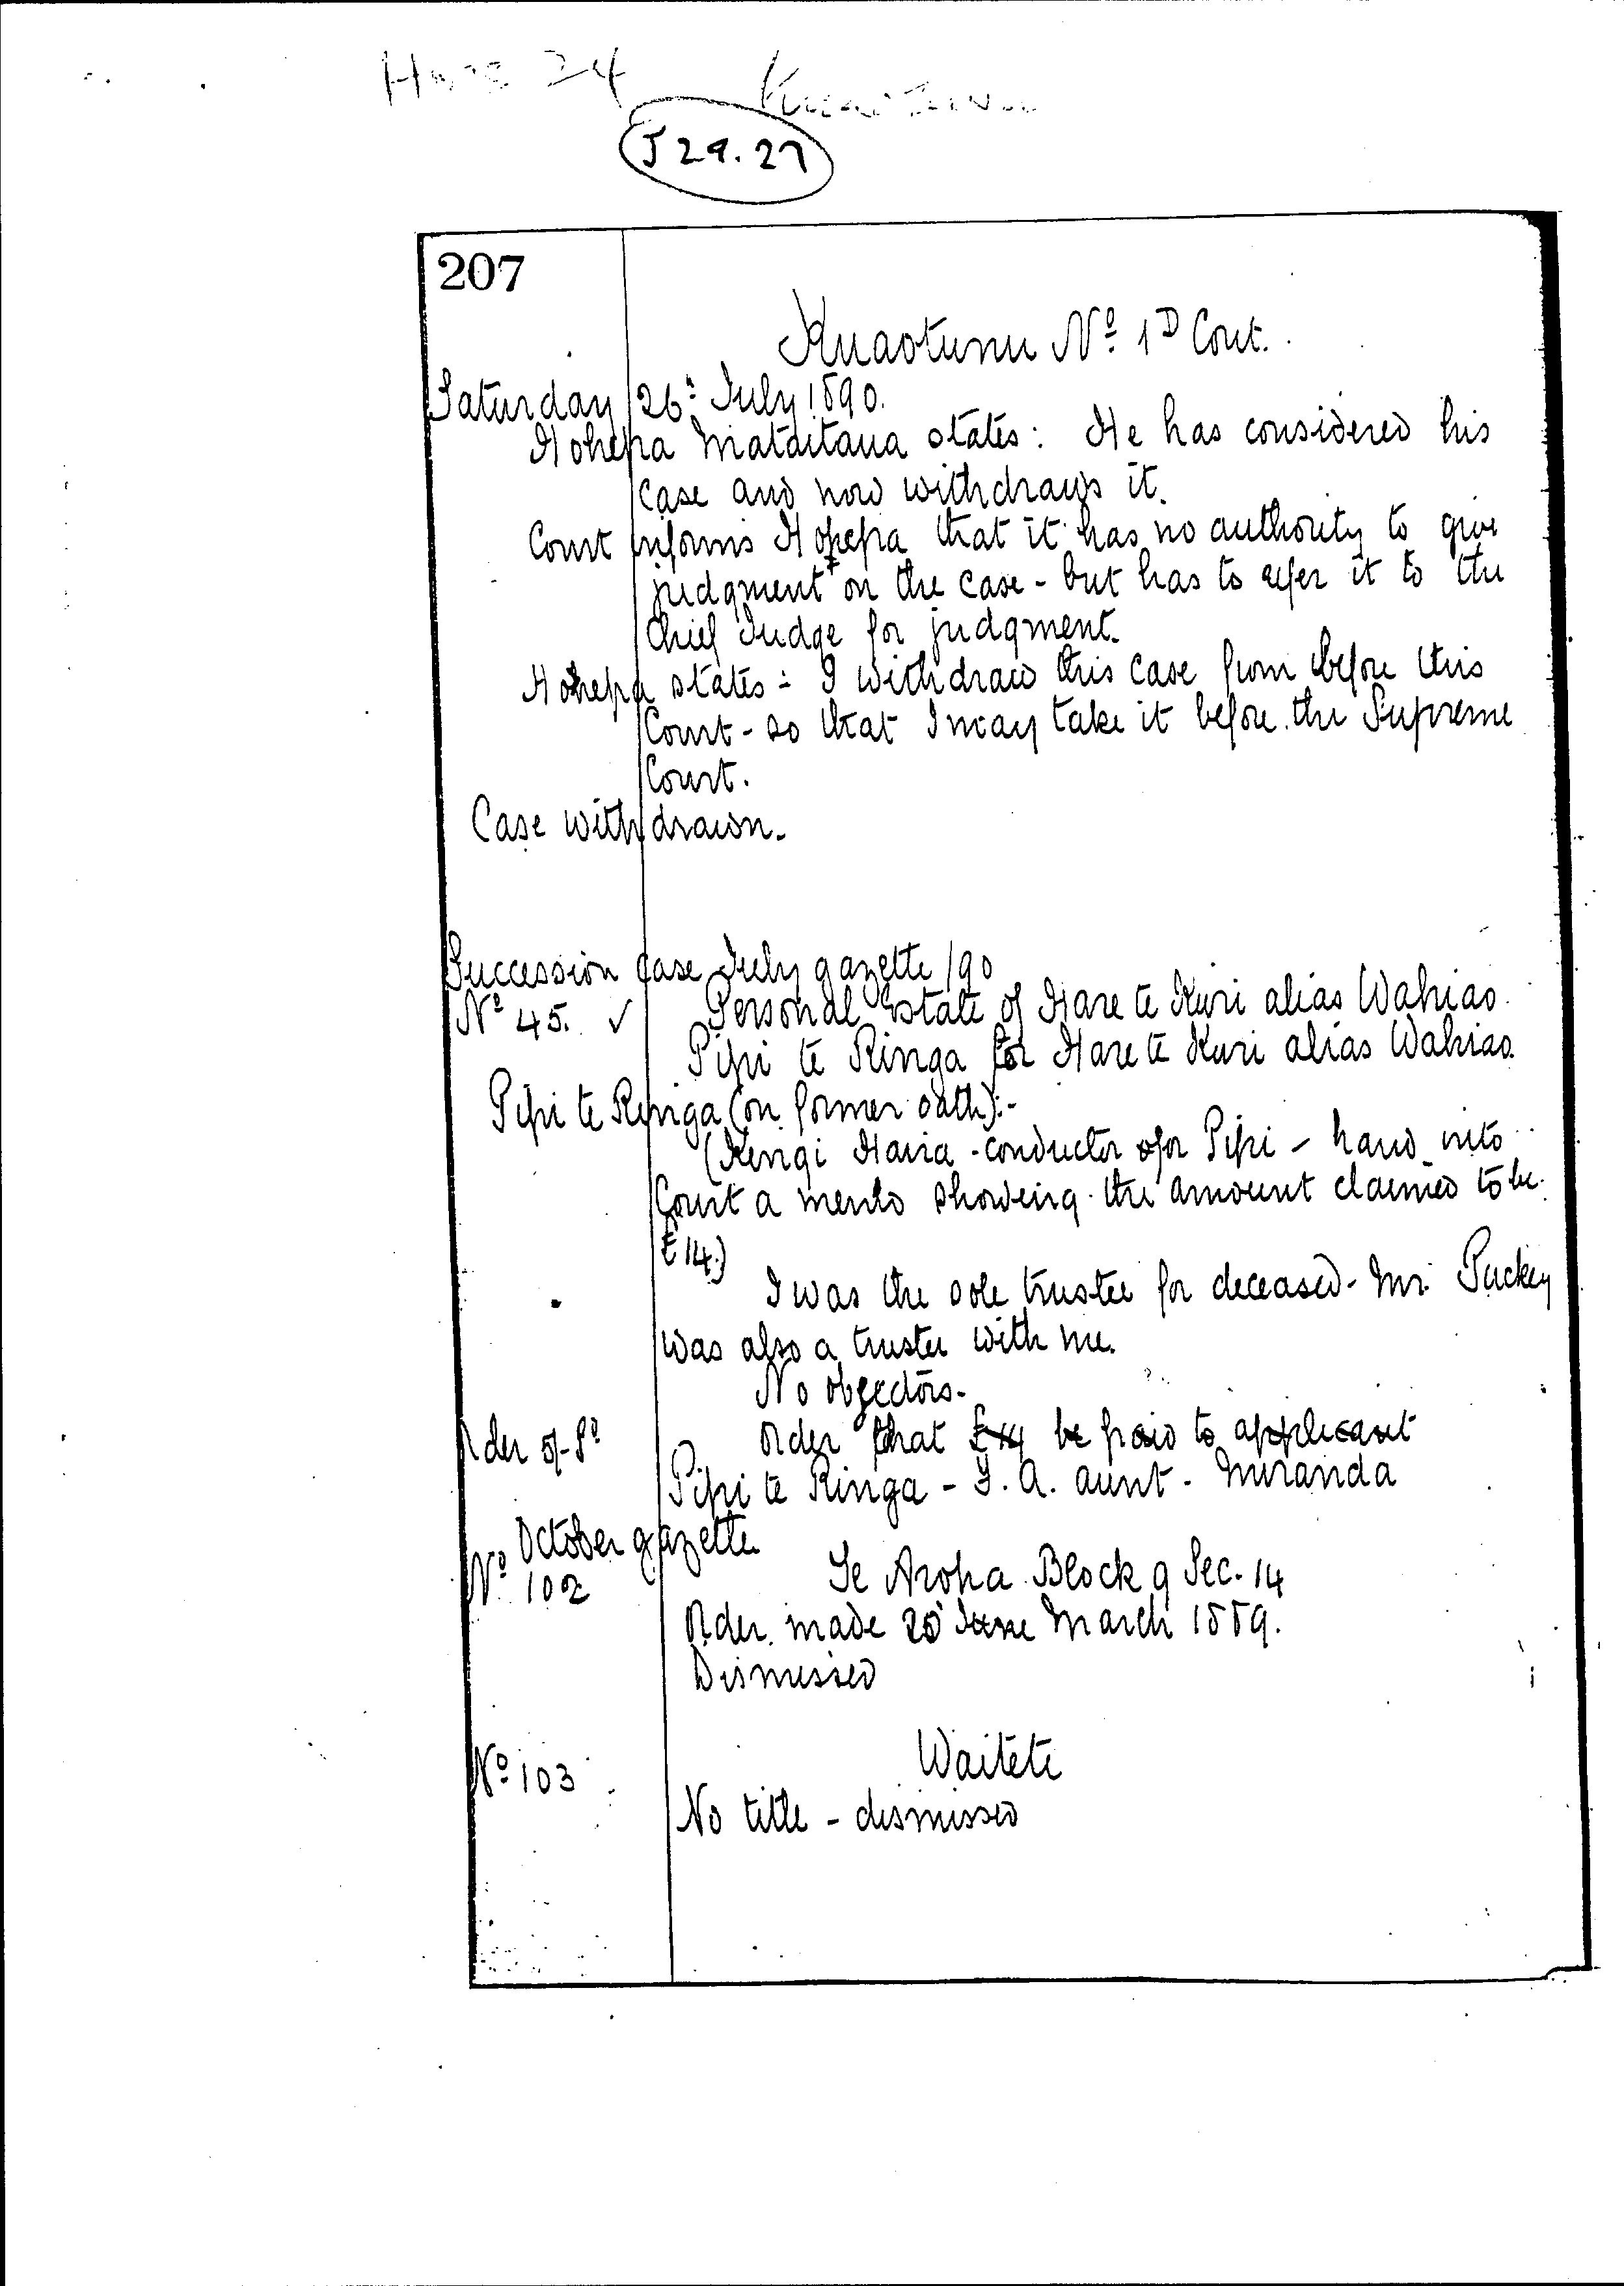 24
J 29.27
207
Kuaotunu Nº 1D Cont.
Saturday 26: July 1890.
Hohepa Mataitaua states: He has considered his
case and now withdraws it.
Court informs Hohepa that it has no authority to give
judgment on the case - but has to refer it to the
Chief Judge for judgment.
Hohepa states:- I withdraw this case from before this
Court - so that I may take it before the Supreme
Court.
Case withdrawn.
Succession case July gazette /90
Nº 45. ✓ Personal Estate of Hare te Kuri alias Wahiao.
Pipi te Ringa for Hare te Kuri alias Wahiao.
Pipi te Ringa (on former oath):-
(Kingi Haira - conductor for Pipi - hand into
Court a memo showing the amount claimed to be
£14.)
I was the sole trustee for deceased - Mr. Puckey
was also a trustee with me.
No objectors.
Order of Sº Order that £14 be paid to applicant
Pipi te Ringa - F. A. aunt - Miranda
October gazette
Nº 102 Te Aroha Block 9 Sec. 14
Order made 20 June March 1889.
Dismissed
Nº 103 Waitete
No title - dismissed